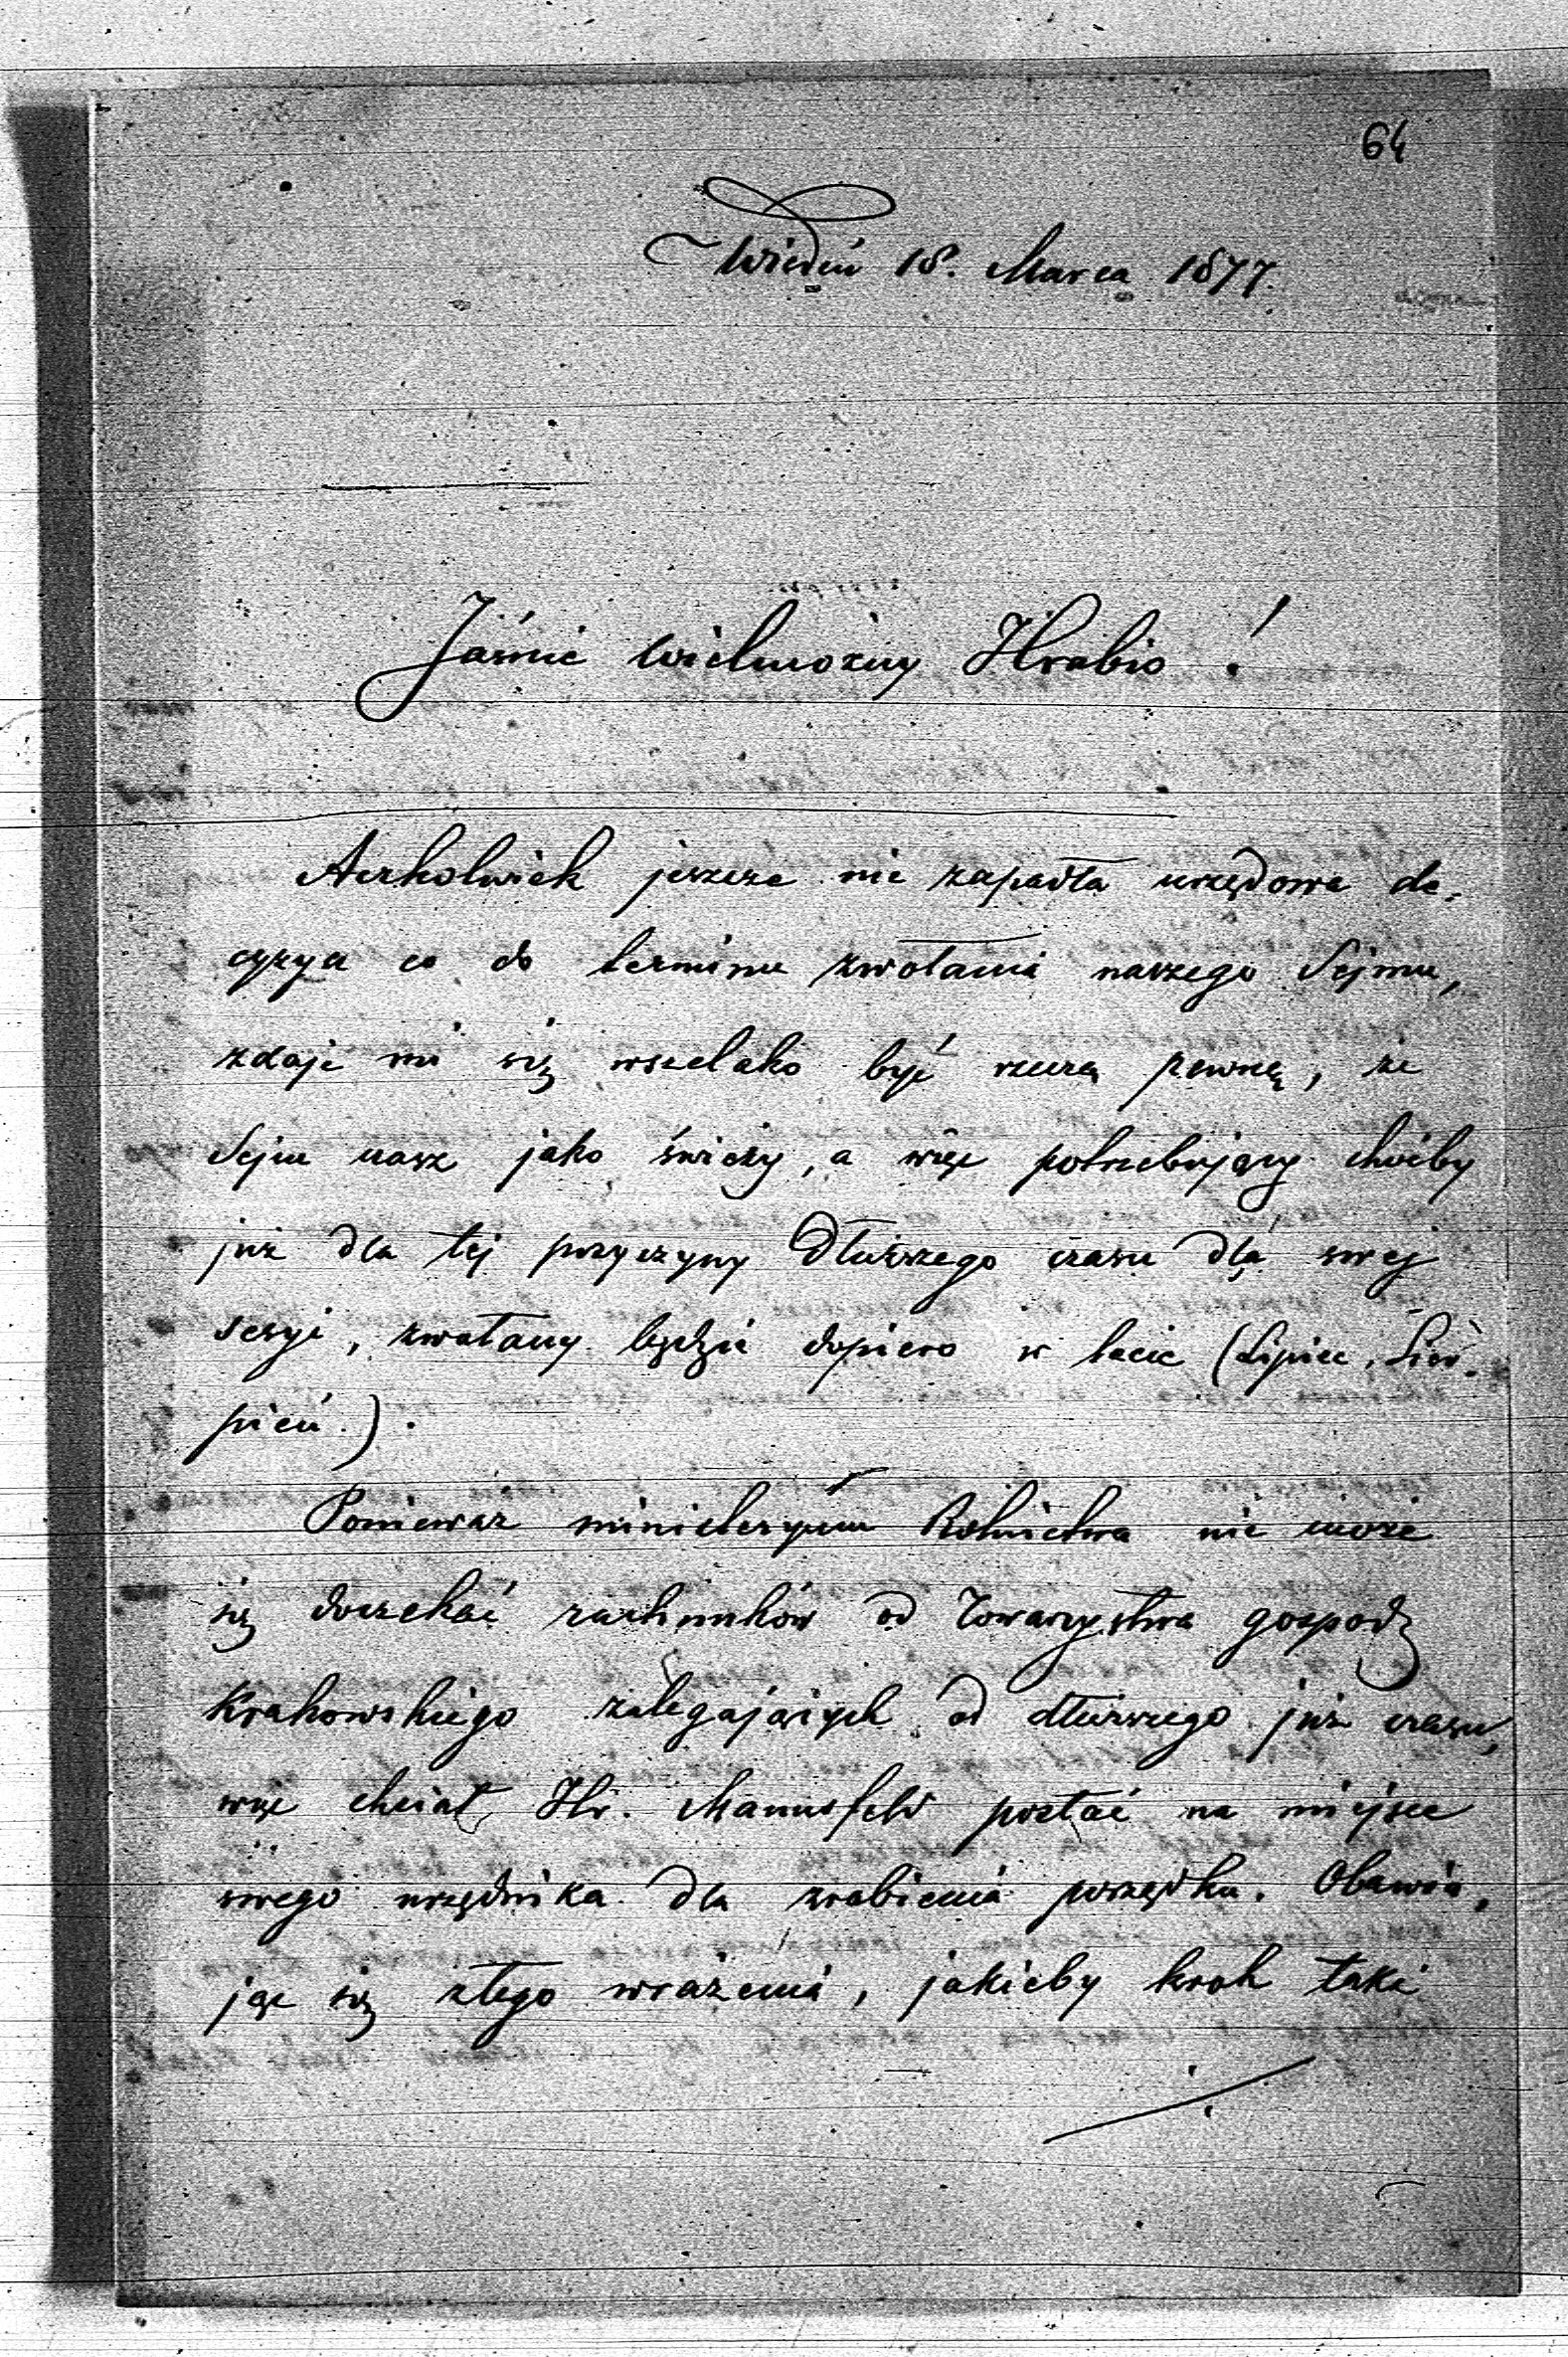 64
Wiedeń 18. Marca 1877.
Jaśnie Wielmożny Hrabio!
Aczkolwiek jeszcze nie zapadła urzędowa de-
cyzya co do terminu zwołania naszego Sejmu,
zdaje mi się wszelako być rzeczą pewną, że
Sejm nasz jako świeży, a więc potrzebujący choćby
już dla tej przyczyny dłuższego czasu dla swej
sesyi, zwołany będzie dopiero w lecie (Lipiec, Sier-
pień.).
Ponieważ ministeryum Rolnictwa nie może
się doczekać rachunków od Towarzystwa gospod
Krakowskiego zalegających od dłuższego już czasu,
więc chciał Hr. Mannsfeld posłać na miejsce
swego urzędnika dla zrobienia porządku. Obawia-
jąc się złego wrażenia, jakieby krok taki
./.